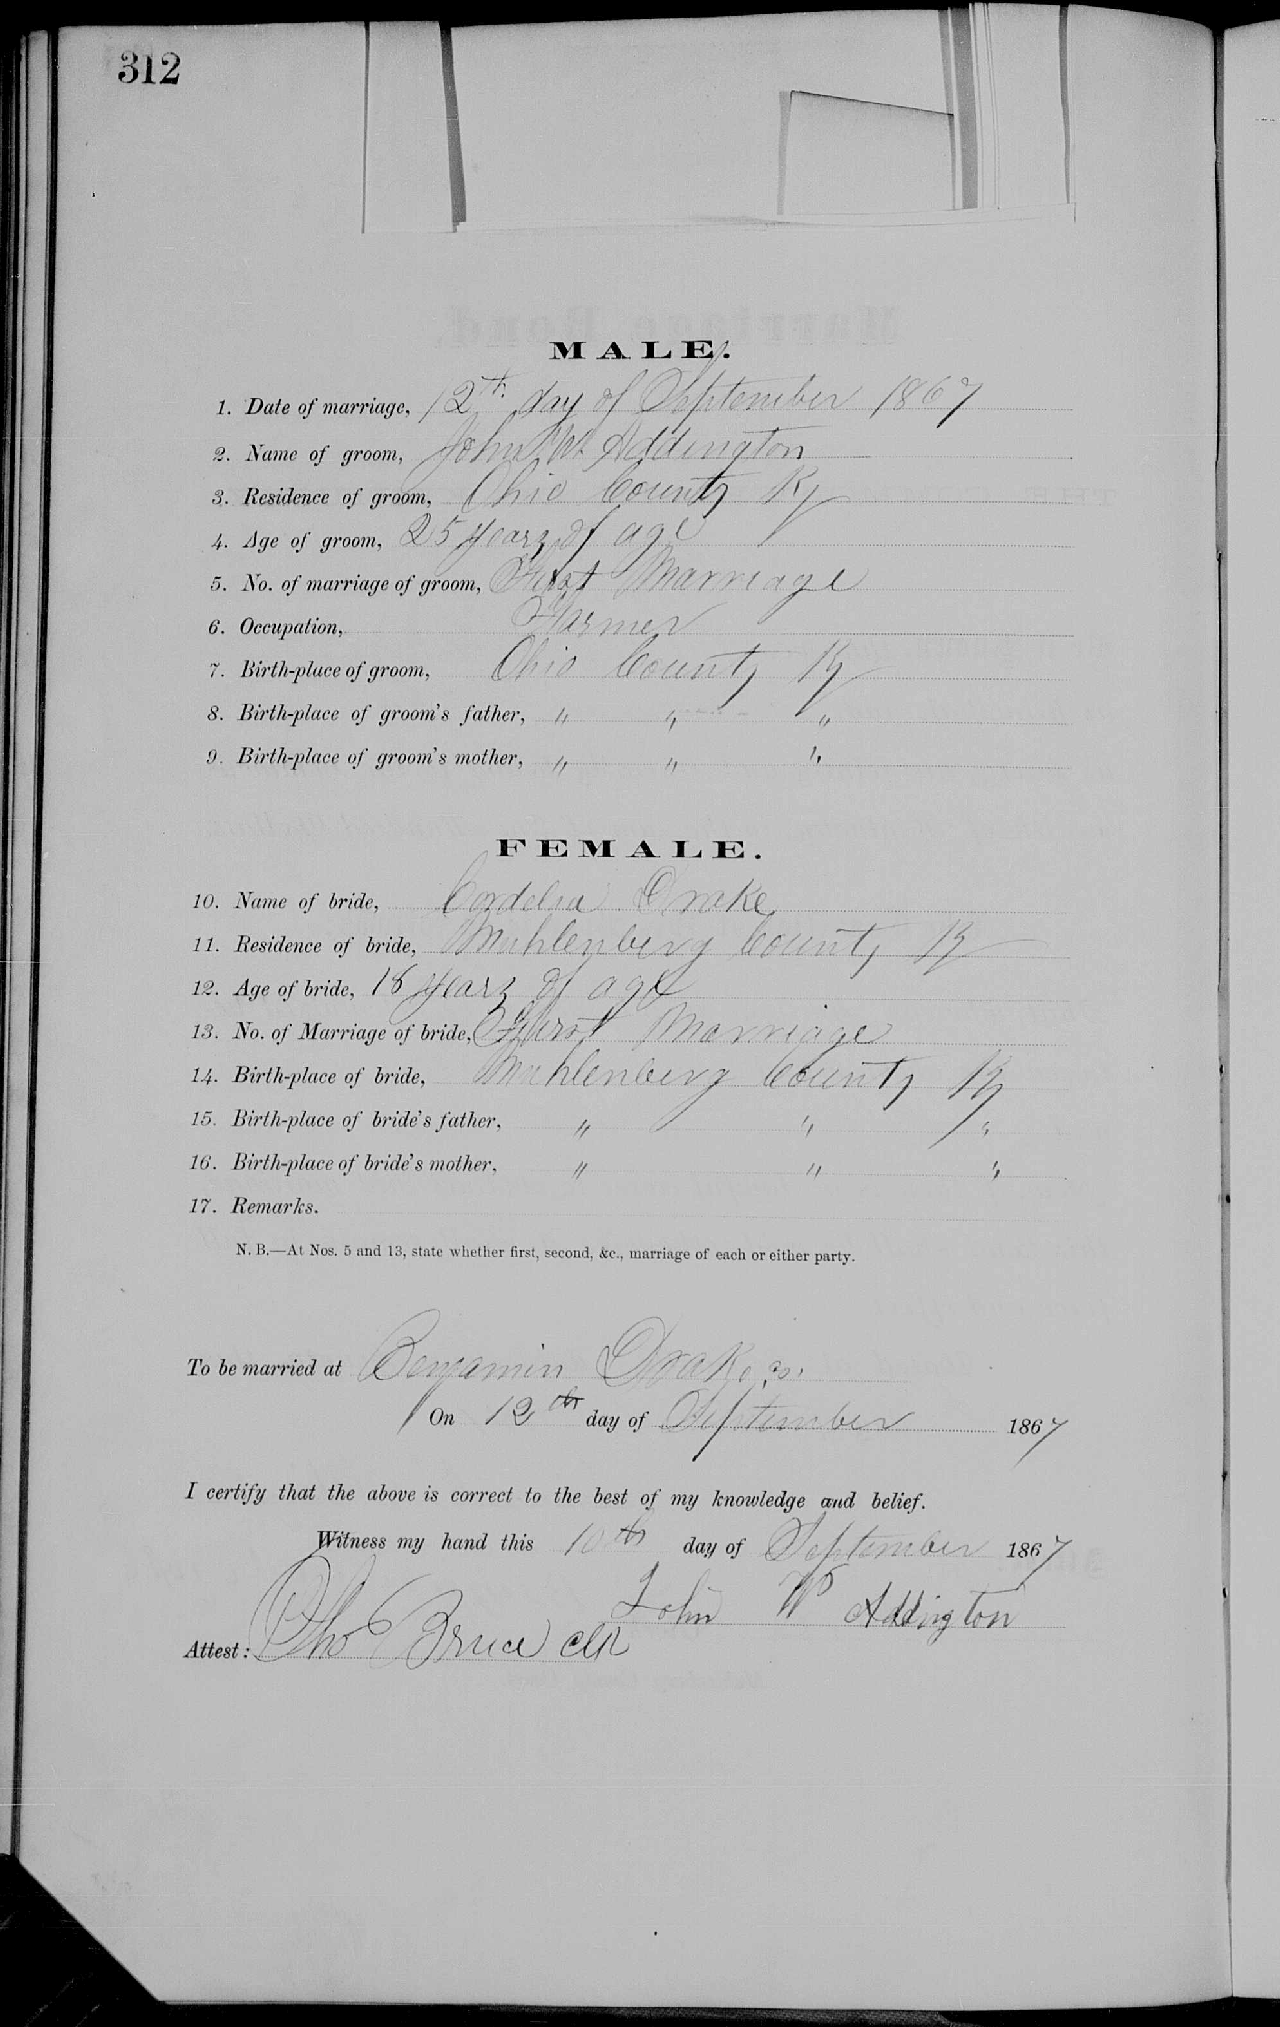 312
MALE.
1. Date of marriage, 12th day of September 1867
2. Name of groom, John W Addington
3. Residence of groom, Ohio County Ky
4. Age of groom, 25 years of age
5. No. of marriage of groom, First Marriage
6. Occupation, Farmer
7. Birth-place of groom, Ohio County Ky
8. Birth-place of groom's father, " " "
9. Birth-place of groom's mother, " " "
FEMALE.
10. Name of bride, Cordelia Drake
11. Residence of bride, Muhlenberg County Ky
12. Age of bride, 18 years of age
13. No. of Marriage of bride, First Marriage
14. Birth-place of bride, Muhlenberg County Ky
15. Birth-place of bride's father, " " "
16. Birth-place of bride's mother, " " "
17. Remarks.
N. B.—At Nos. 5 and 13, state whether first, second, &c., marriage of each or either party.
To be married at Benjamin Drakes
On 12th day of September 1867
I certify that the above is correct to the best of my knowledge and belief.
Witness my hand this 10th day of September 1867
John W Addington
Attest: Otho Bruce clk